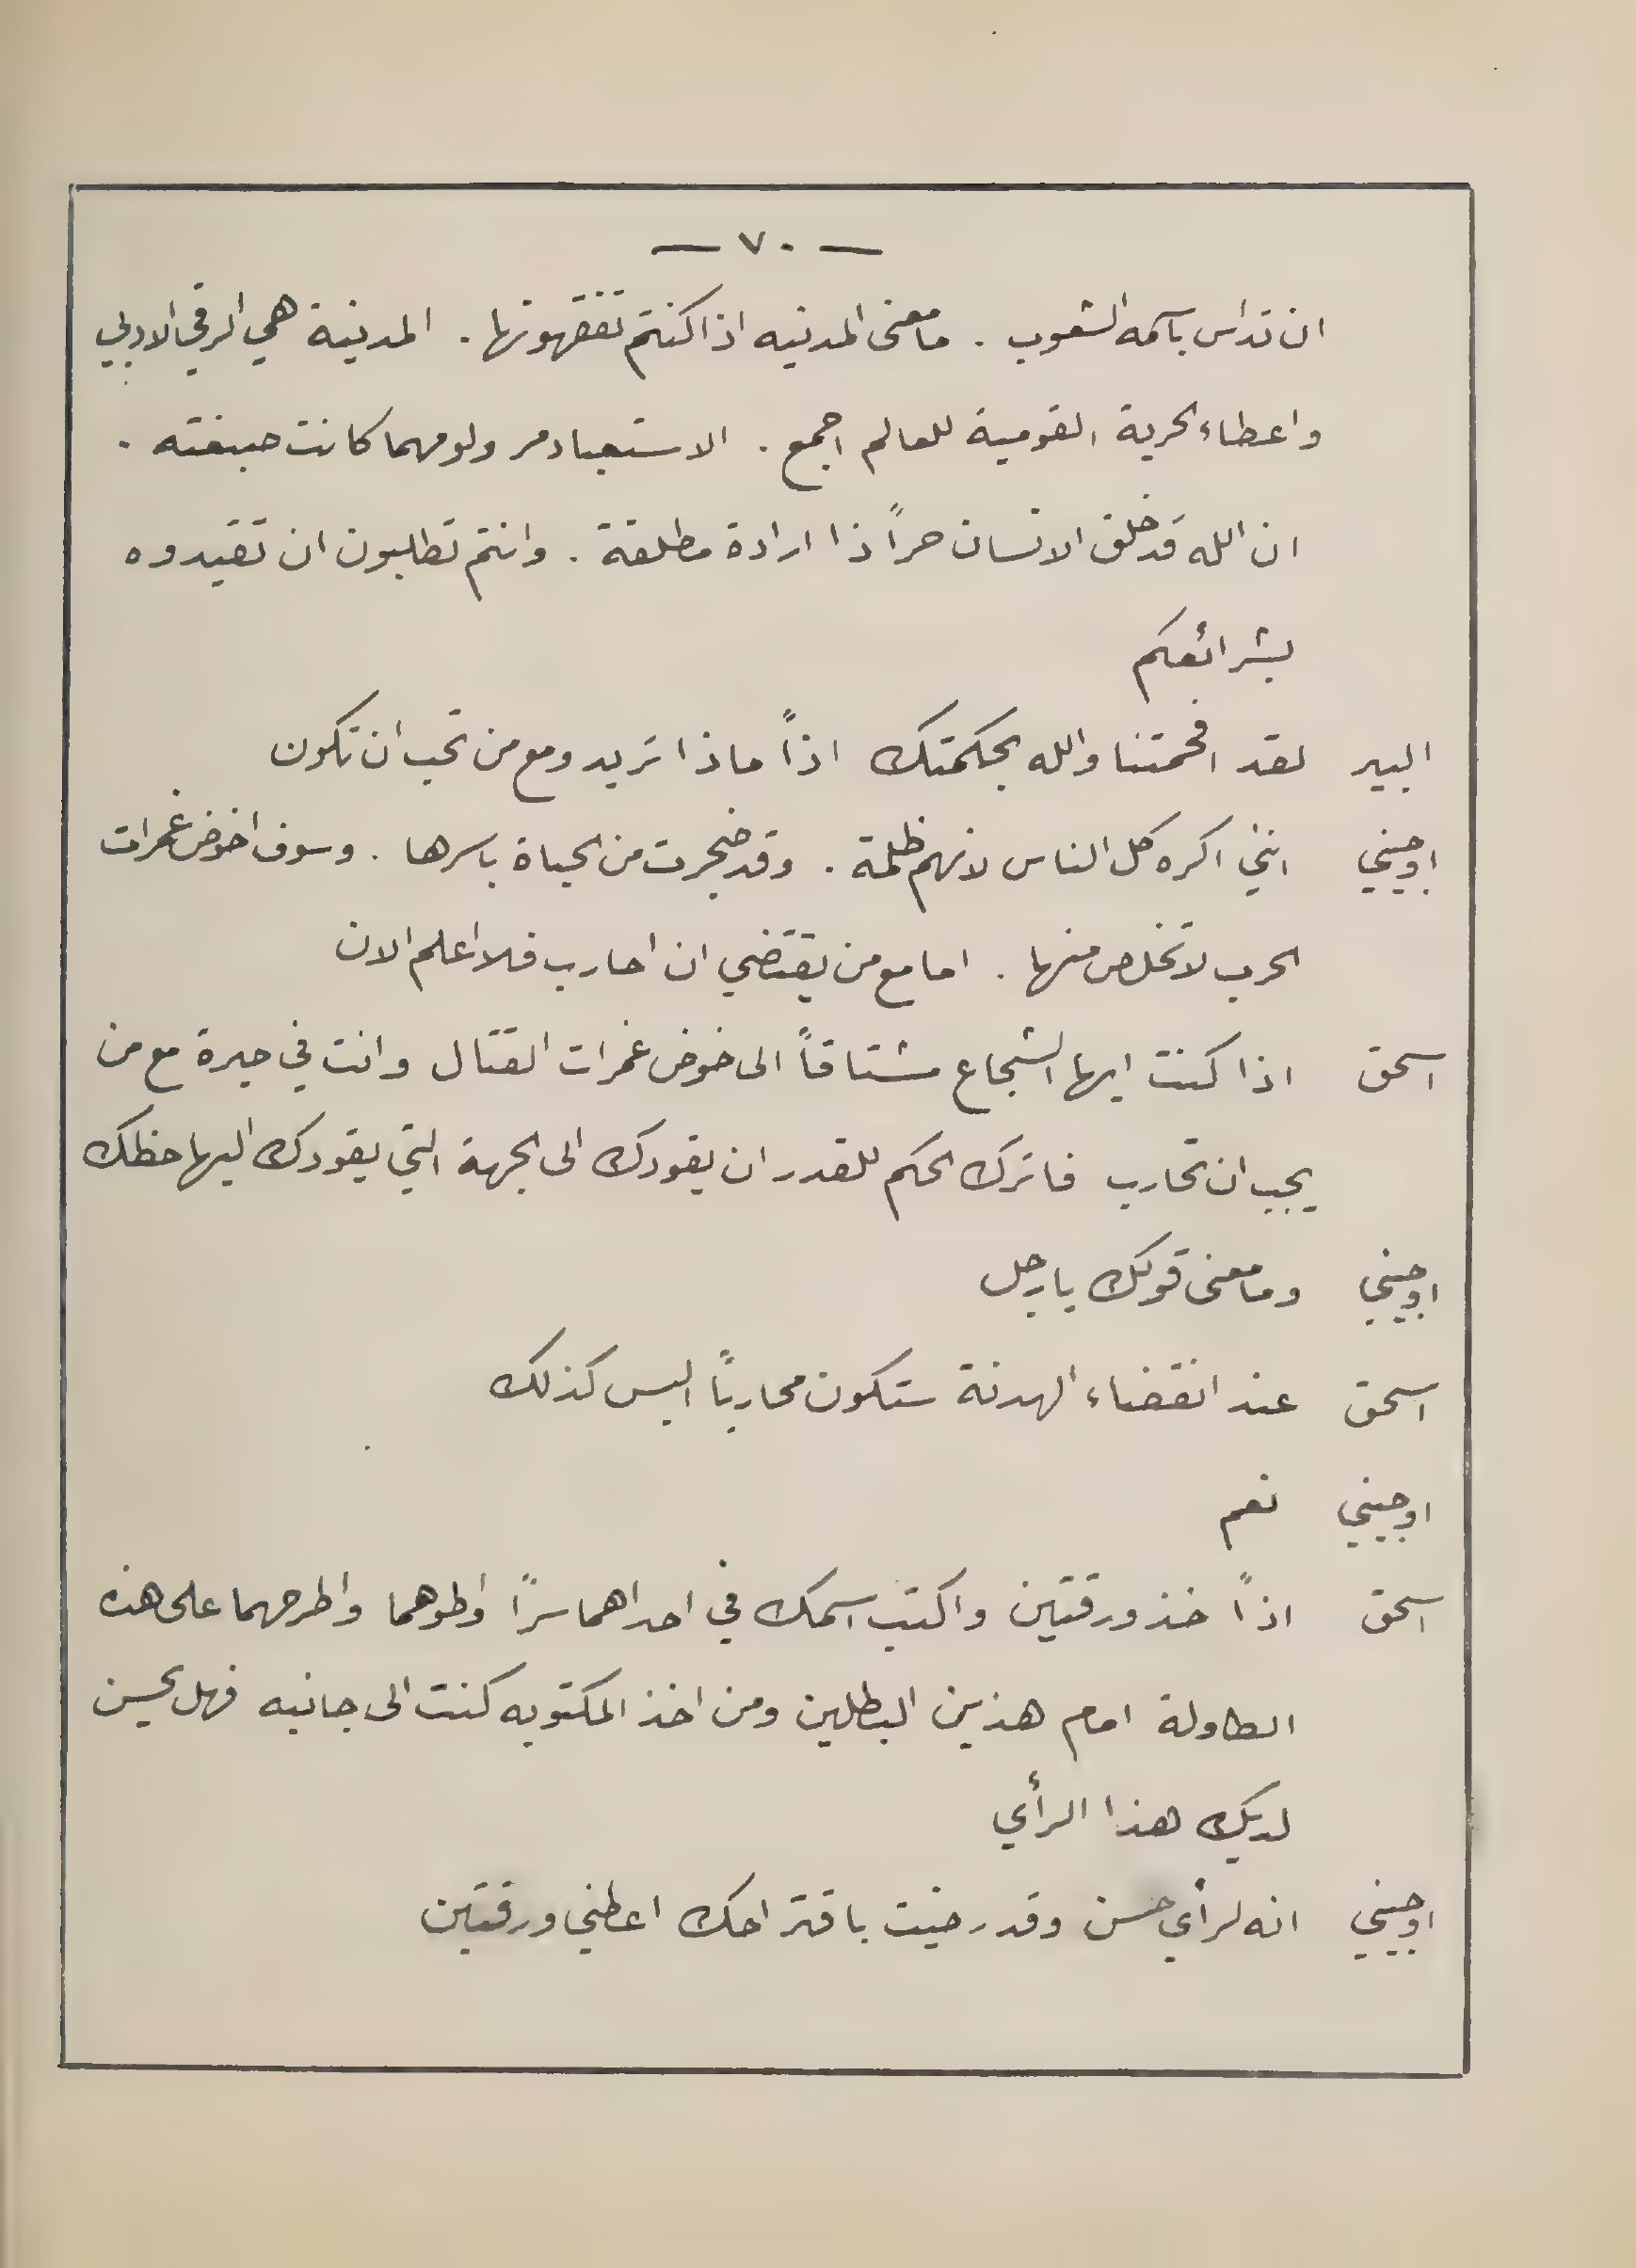 — ٧٠ —
ان تداس باسمه الشعوب . ما معنى المدنيه اذا كنتم تفقهونها . المدنية هي الرقي الادبي
واعطاء الحرية القومية للعالم اجمع . الاستعباد مر ولو مهما كانت صبغته .
ان الله قد خلق الانسان حراً ذا ارادة مطلقة . وانتم تطلبون ان تقيدوه
بشرائعكم
البير لقد افحمتنا والله بحكمتك اذاً ماذا تريد ومع من تحب ان تكون
اوجيني انني اكره كل الناس لانهم ظلمة . وقد ضجرت من الحياة باسرها . وسوف اخوض غمرات
الحرب لاتخلص منها . اما مع من يقتضي ان احارب فلا اعلم الان
اسحق اذا كنت ايها الشجاع مشتاقاً الى خوض غمرات القتال وانت في حيرة مع من
يجب ان تحارب فاترك الحكم للقدر ان يقودك الى الجهة التي يقودك اليها حظك
اوجيني وما معنى قولك يا رجل
اسحق عند انقضاء الهدنة ستكون محارباً اليس كذلك
اوجيني نعم
اسحق اذاً خذ ورقتين واكتب اسمك في احداهما سراً واطوهما واطرحهما على هذه
الطاولة امام هذين البطلين ومن اخذ المكتوبه كنت الى جانبه فهل يحسن
لديك هذا الرأي
اوجيني انه لرأي حسن وقد رضيت باقتراحك اعطني ورقتين